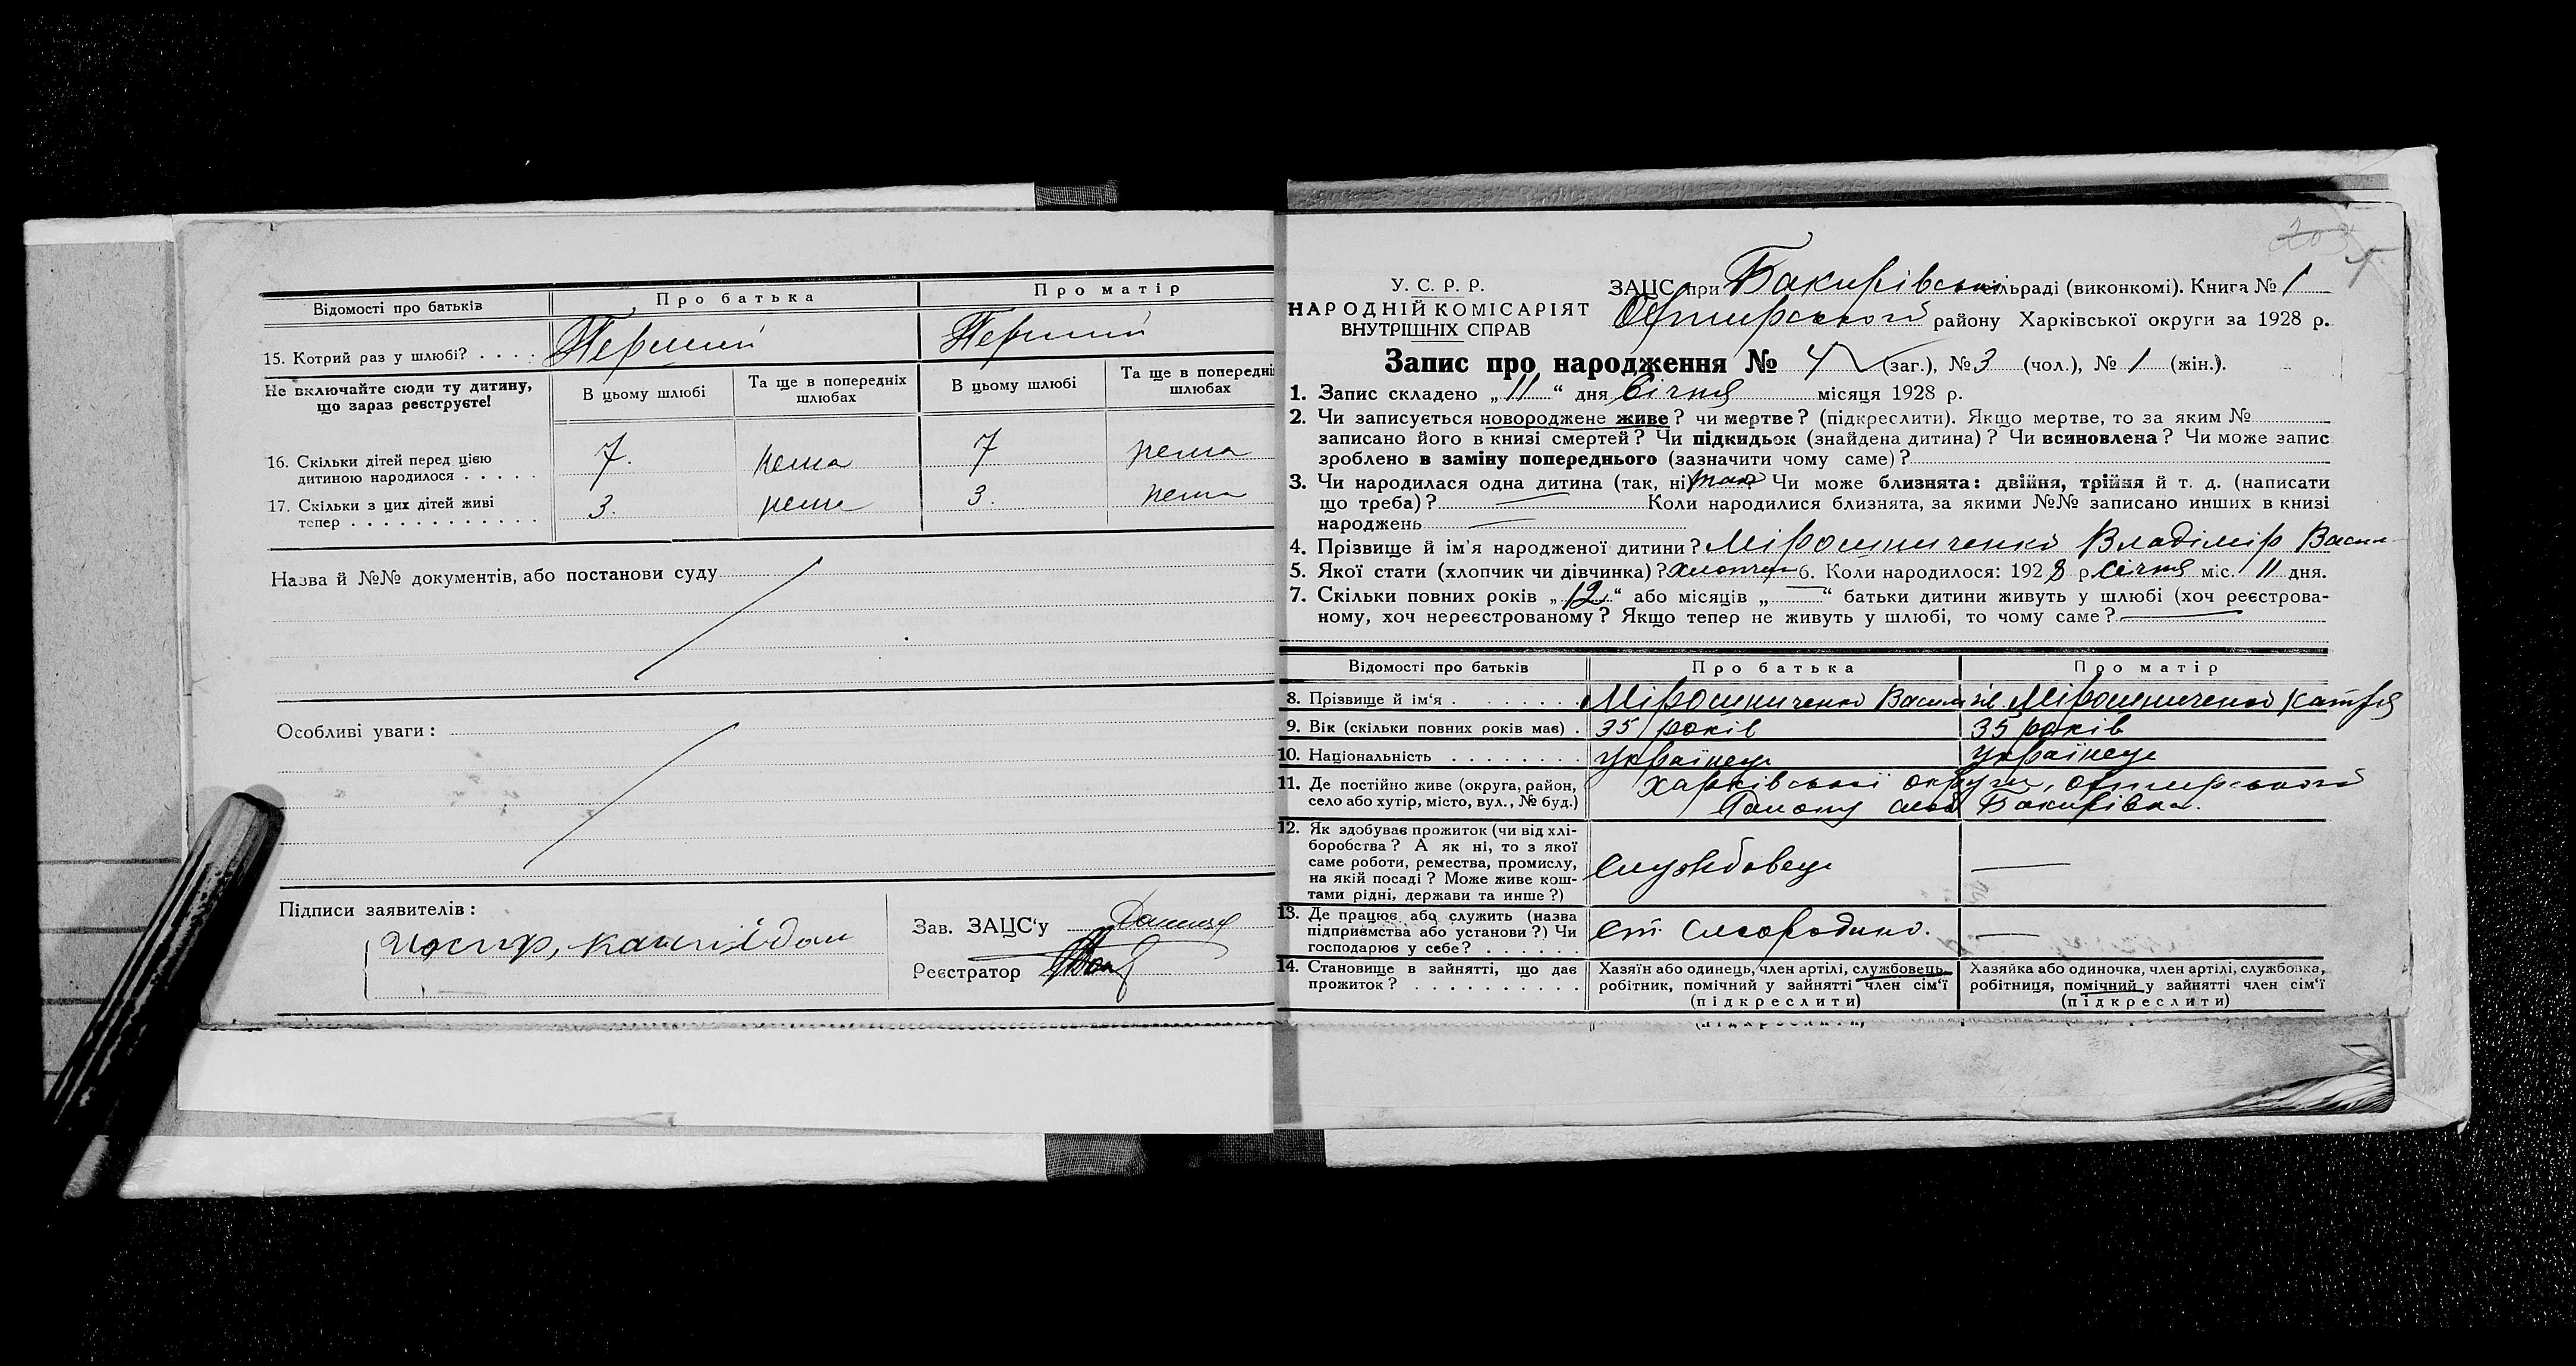 Відомості про батьків
Про батька
Про матір
15. Котрий раз у шлюбі? . . . .
Перший
Перший
Не включайте сюди ту дитину,
що зараз реєструєте!
В цьому шлюбі
Та ще в попередніх
шлюбах
В цьому шлюбі
Та ще в попередні
шлюбах
16. Скільки дітей перед цією
дитиною народилося . . . . .
7.
нема
7
нема
17. Скільки з цих дітей живі
тепер . . . . . . . . . . . .
3.
нема
3.
нема
Назва й №№ документів, або постанови суду
Особливі уваги:
Підписи заявителів:
Зав. ЗАЦС‘у
Реєстратор
У. С. Р. Р.
НАРОДНІЙ КОМІСАРІЯТ
ВНУТРІШНІХ СПРАВ
203
ЗАЦС при Бакирівській сільраді (виконкомі). Книга № 1
Охтирського району Харківської округи за 1928 р.
Запис про народження № 4 (заг.), № 3 (чол.), № 1 (жін.).
1. Запис складено „11“ дня Січня місяця 1928 р.
2. Чи записується новороджене живе? чи мертве? (підкреслити). Якщо мертве, то за яким №
записано його в книзі смертей? Чи підкидьок (знайдена дитина)? Чи всиновлена? Чи може запис
зроблено в заміну попереднього (зазначити чому саме)?
3. Чи народилася одна дитина (так, ні) так? Чи може близнята: двійня, трійня й т. д. (написати
що треба)? — Коли народилися близнята, за якими №№ записано инших в книзі
народжень —
4. Прізвище й ім'я народженої дитини? Мірошниченко Владімір Васил
5. Якої стати (хлопчик чи дівчинка)? хлопчик 6. Коли народилося: 1928 р. Січня міс. 11 дня.
7. Скільки повних років „12“ або місяців „—“ батьки дитини живуть у шлюбі (хоч реєстрова-
ному, хоч нереєстрованому? Якщо тепер не живуть у шлюбі, то чому саме? —
Відомості про батьків
Про батька
Про матір
8. Прізвище й ім‘я . . . . . . . .
Мірошниченко Васил
Мірошниченко Катря
9. Вік (скільки повних років має) .
35 років
35 років
10. Національність . . . . . . . .
Українець
Українець
11. Де постійно живе (округа, район,
село або хутір, місто, вул., № буд.)
Харківської округи, Охтирського
Району село Бакирівка.
12. Як здобуває прожиток (чи від хлі-
боробства? А як ні, то з якої
саме роботи, ремества, промислу,
на якій посаді? Може живе кош-
тами рідні, держави та инше?)
Службовець
—
13. Де працює або служить (назва
підприємства або установи?) Чи
господарює у себе? . . . . . .
ст. Смородино.
—
14. Становище в зайнятті, що дає
прожиток? . . . . . . . . . .
Хазяїн або одинець, член артілі, службовець,
робітник, помічний у зайнятті член сім‘ї
(підкреслити)
Хазяйка або одиночка, член артілі, службовка,
робітниця, помічний у зайнятті член сім‘ї
(підкреслити)